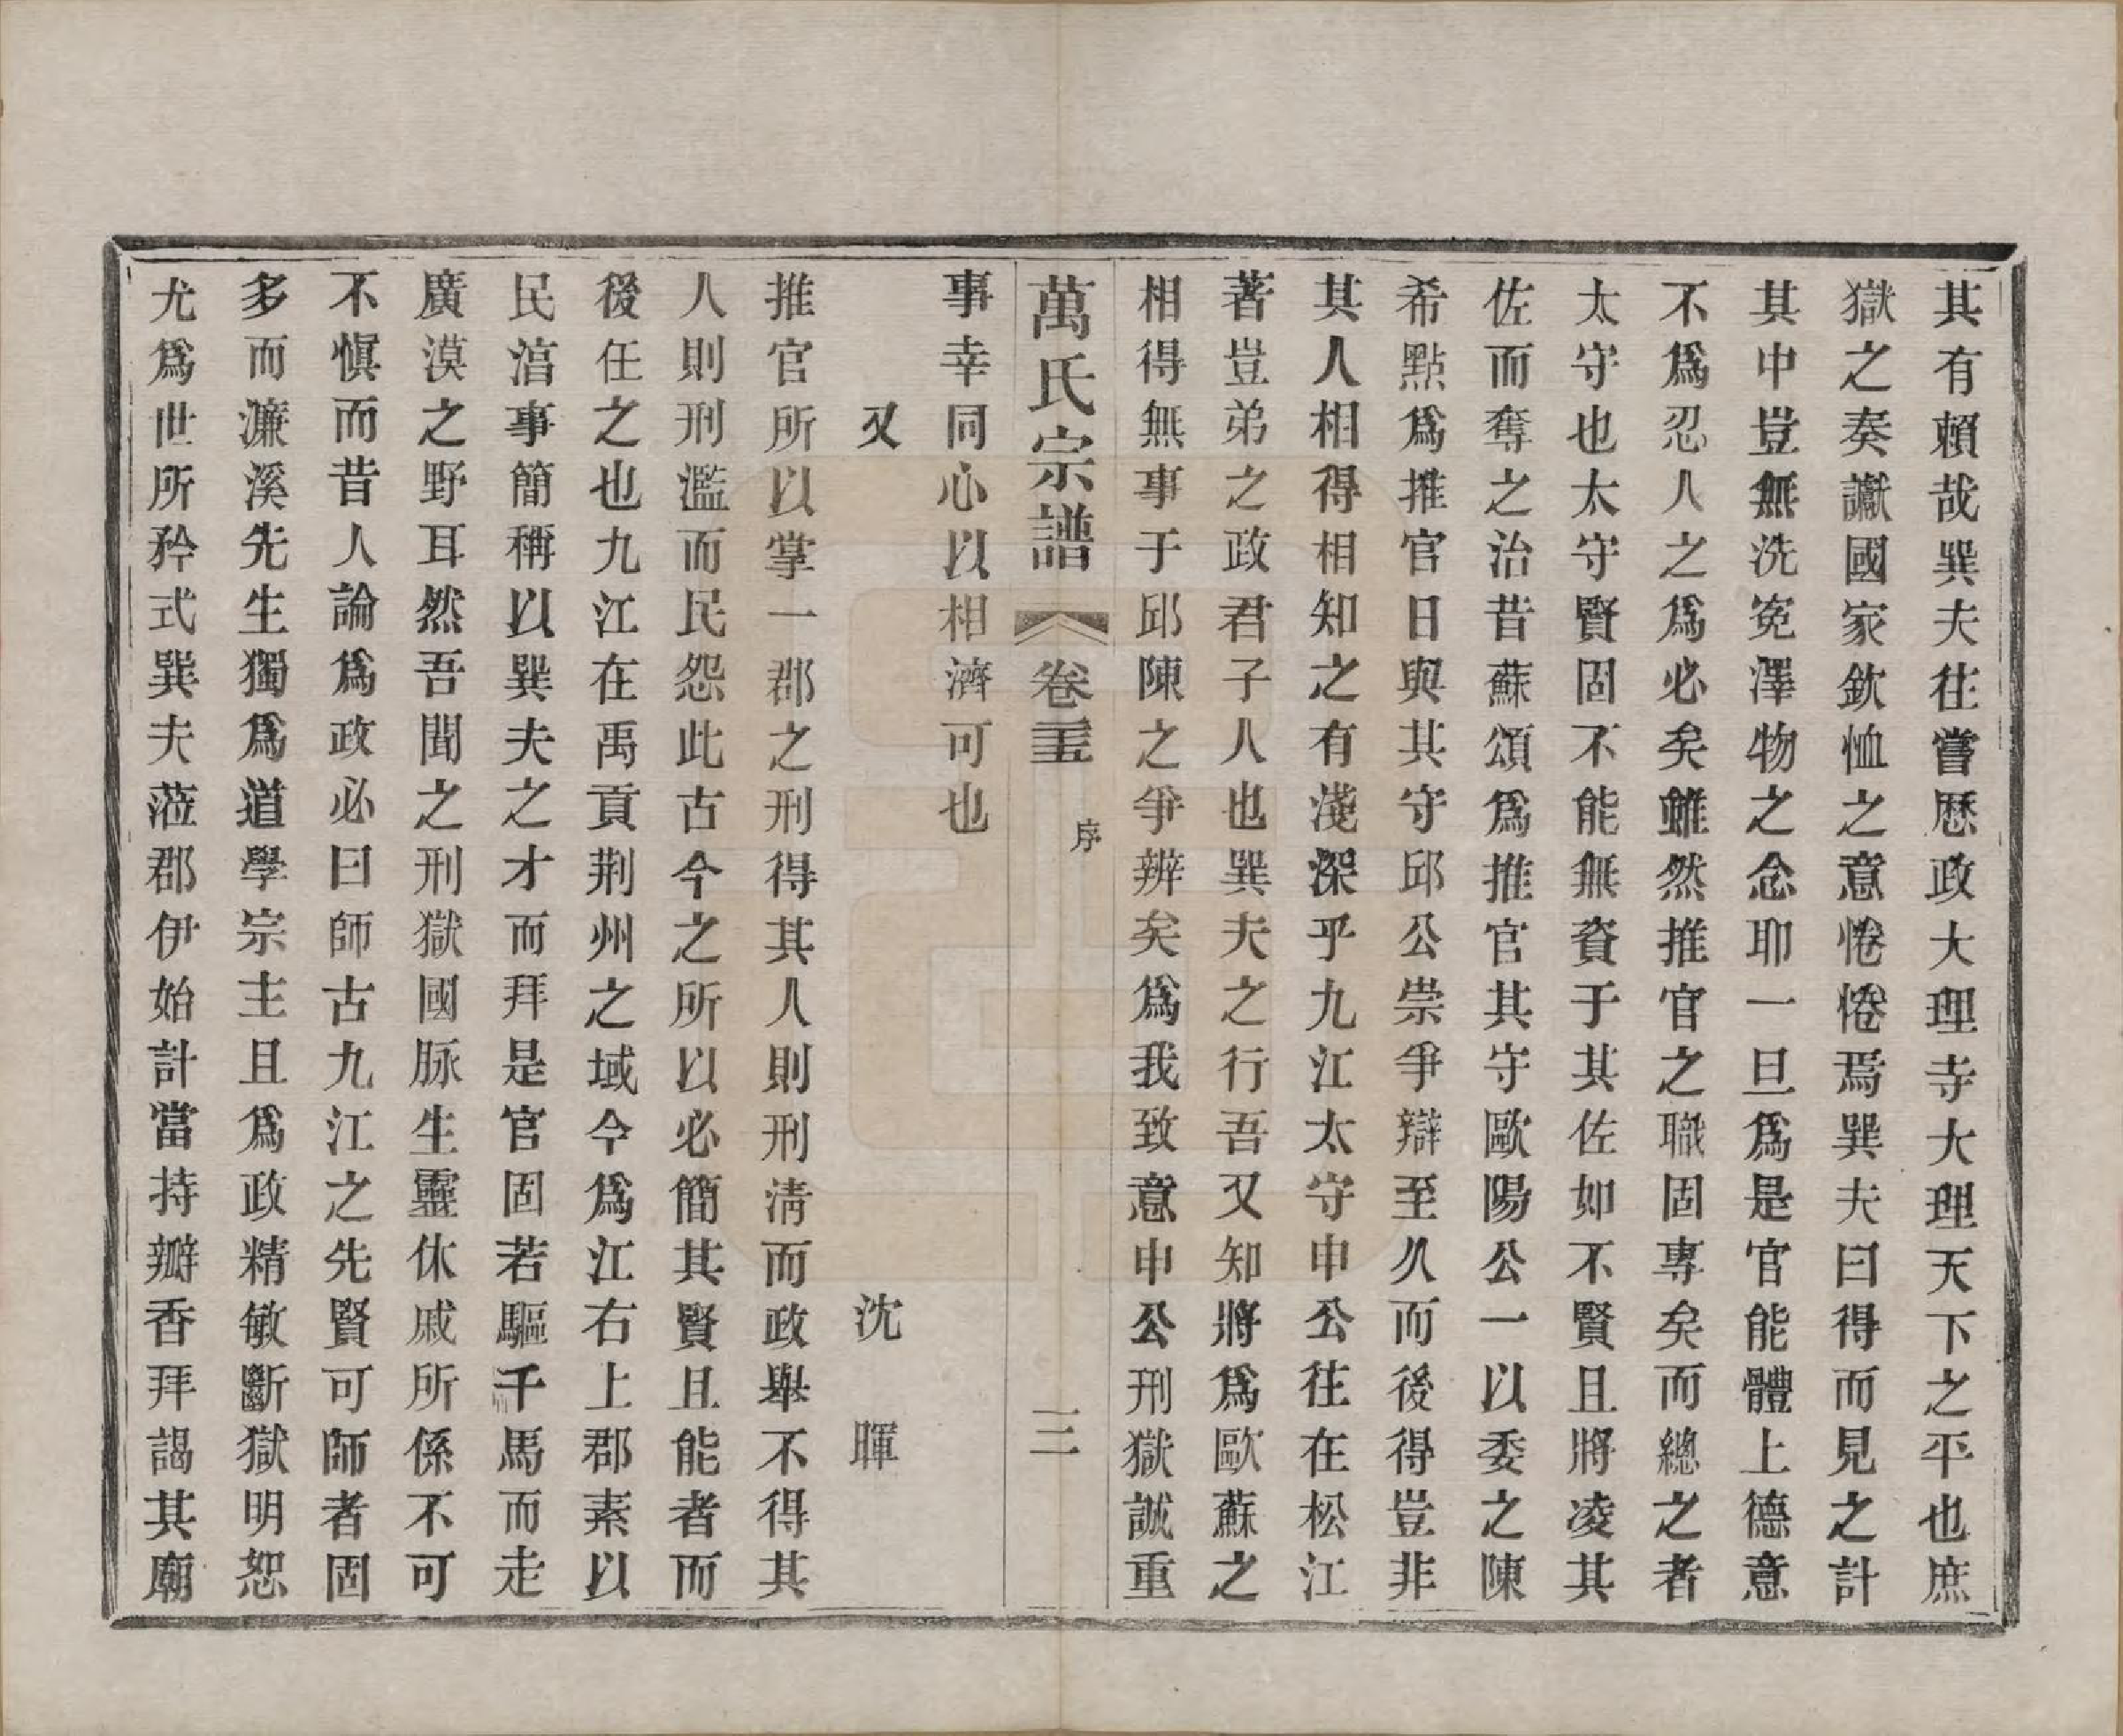 其有賴哉巽夫往嘗歷政大理寺大理天下之平也庶
獄之奏讞國家欽恤之意惓惓焉巽夫曰得而見之計
其中豈無洗冤澤物之念耶一旦爲是官能體上德意
不爲忍人之爲必矣雖然推官之職固專矣而總之者
太守也太守賢固不能無資于其佐如不賢且將凌其
佐而奪之治昔蘇頌爲推官其守歐陽公一以委之陳
希點爲推官日與其守邱公崇爭辯至久而後得豈非
其人相得相知之有淺深乎九江太守申公往在松江
著豈弟之政君子人也巽夫之行吾又知將爲歐蘇之
相得無事于邱陳之爭辨矣爲我致意申公刑獄誠重
萬氏宗譜 卷三五 序 三
事幸同心以相濟可也
又 沈暉
推官所以掌一郡之刑得其人則刑淸而政舉不得其
人則刑濫而民怨此古今之所以必簡其賢且能者而
後任之也九江在禹貢荆州之域今爲江右上郡素以
民湻事簡稱以巽夫之才而拜是官固若驅千馬而走
廣漠之野耳然吾聞之刑獄國脉生靈休戚所係不可
不愼而昔人論爲政必曰師古九江之先賢可師者固
多而濂溪先生獨爲道學宗主且爲政精敏斷獄明恕
尤爲世所矜式巽夫蒞郡伊始計當持瓣香拜謁其廟